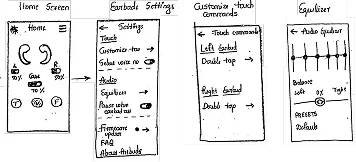 Home Screen
Home
L
R
50%
50%
Case
70%
T
W
F
Earbuds Settings
← Settings
Touch
Customize-tou →
Audio
Equilizer →
Pause when
earbud out
Firmware
update →
FAQ
About Earbuds
Customize-touch
Commands
← Touch commands
Left Earbud
Double-tap →
Right Earbud
Double-tap →
Equilizer
← Audio Equilizer
Balance
Left 0% Right
PRESETS
Default